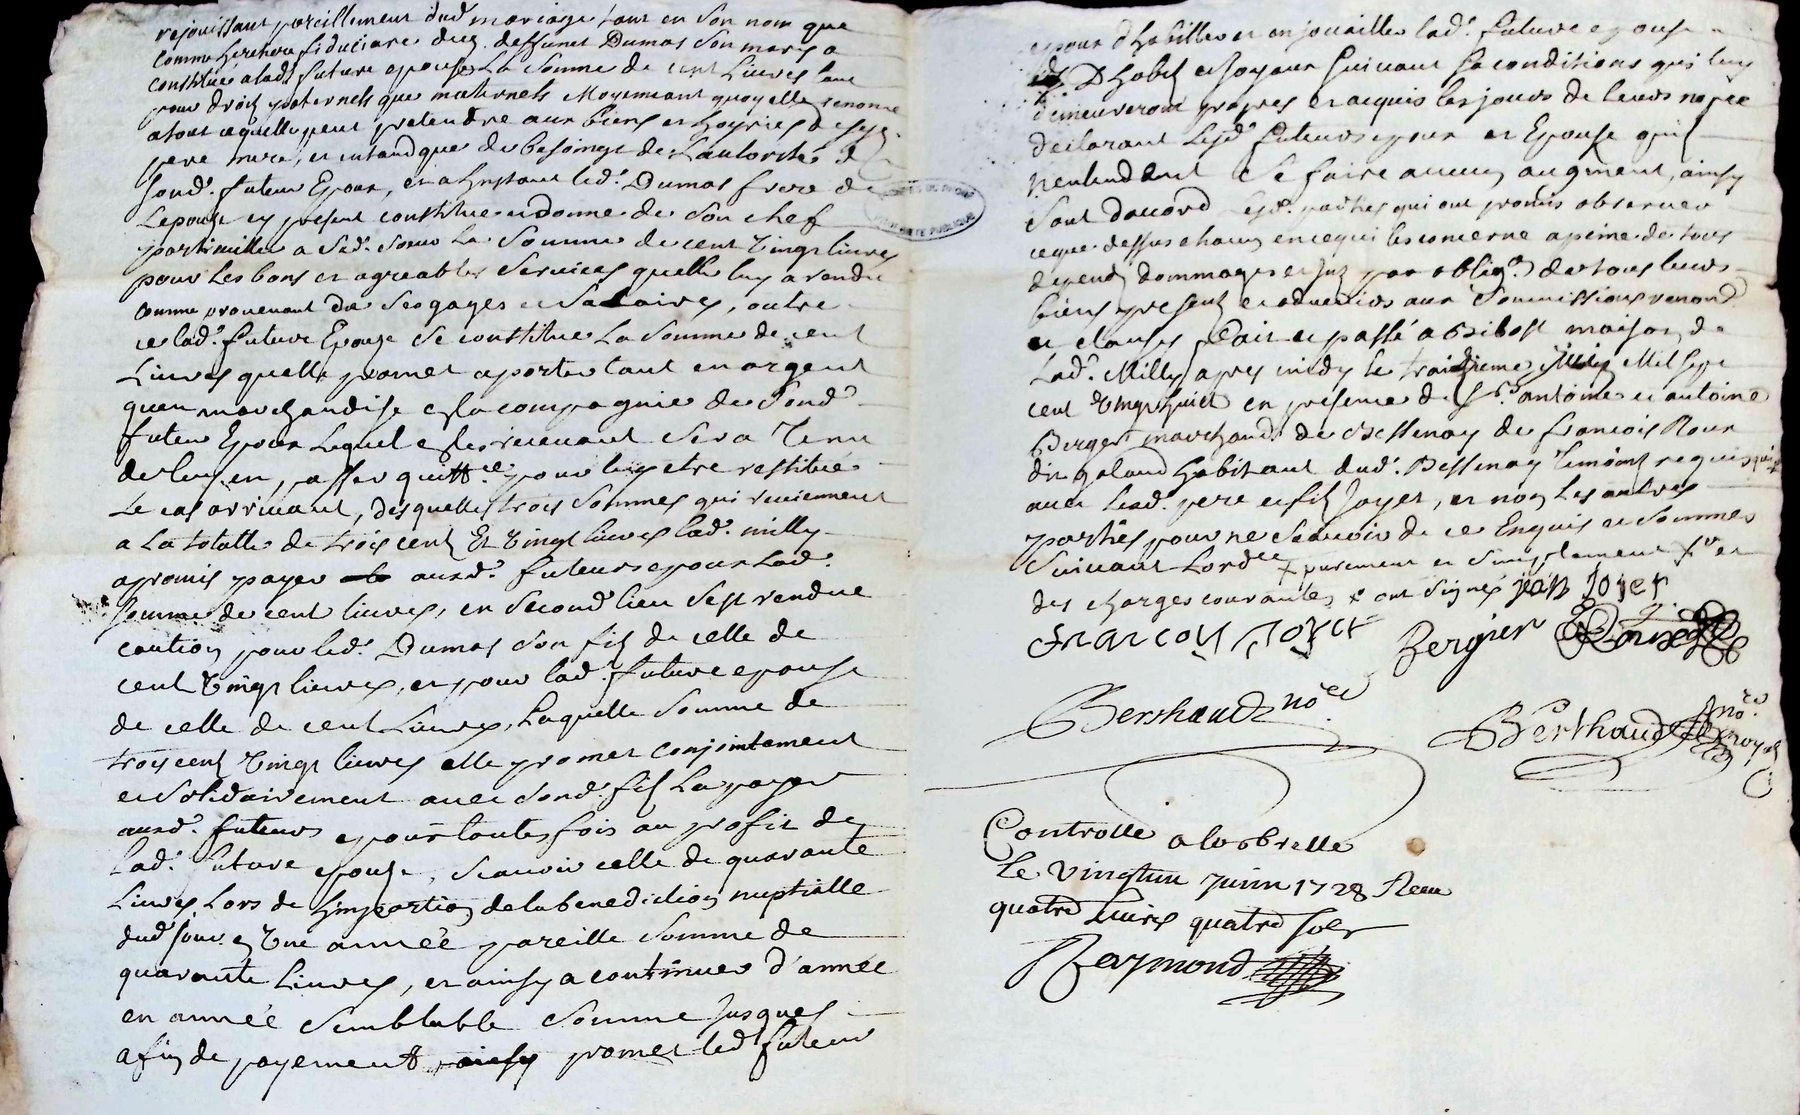 rejouissant pareillement dud. mariage tant en son nom que
comme heritiere fiduciaire dud. deffunct Dumas son mary a
constitué a lad. future epouse la somme de cent livres tant
pour droits paternels que maternels moyennant quoy elle renonce
a tout ce quelle peut pretendre aux biens et hoyries de sesd.
pere mere, et entand que de besoingt de lautorité de
sond. futeur Epoux, et a linstant led. Dumas frere de
Lepouse cy present constitue et donne de son chef
particuillier a sad. soeur La somme de cent vingt livres
pour les bons et agreables services quelle luy a rendu
comme provenant de ses gages et salaires, outre
ce lad. future Epouse se constitue La somme de cent
Livres quelle promet aporter tant en argent
quen marchandise en la compagnie de sond.
futeur Epoux Lequel en les recevant sera tenu
de luy en passer quittce. pour luy etre restituée
Le cas arrivant, desquelles trois sommes qui reviennent
a la totalle de trois cents et vingt livres lad. milly
a promis payer auxd. futeurs epoux Lad.
somme de cent livres, en second lieu sest rendue
caution pour led. Dumas son fils de celle de
cent vingt livres, et pour lad. future epouse
de celle de cent Livres, Laquelle somme de
trois cents vingt livres elle promet conjointement
et solidairement avec sond. fils La payer
auxd. futeurs epoux toutes fois au profit de
lad. future epouse, scavoir celle de quarante
Livres Lors de limpartion de la benediction nuptialle
dud. jour en une année pareille somme de
quarante Livres, et ainsy a continuer d'année
en année semblable somme jusques
a fin de payement, promet led. futeur
epoux dhabiller et enjoailler lad. future epouse
D habits et joyaux suivant sa conditions qui luy
demeureront propres et acquis les jours de leurs nopce
declarant Lesd. futeurs epoux et Epouse quils
nentendent se faire aucun augment, ainsy
sont daccord lesd. parties qui ont promis observer
ce que dessus chacun en ce qui les concerne a peine de tous
depends dommages et intz par obligon. de tous leurs
biens presents et advenirs aux soumissions renond
et clauses fait et passé a Bibost maison de
Lad. Milly apres midy le troizieme Juin Mil sept
cent vingt huict en presence de Sr. antoine et antoine
Berger marchands de Bessenay de francois Roux
dit galand habitant dud. Bessenay temoins requis qui
avec lesd. pere et fils Joyet, et non les autres
parties pour ne scavoir de ce Enquis et sommes
suivant Lordce x purement et simplement
des charges courantes x ont signés jean Joyet
francois Joyet Bergier
Berthaud nore
Berthaud nore royal
Controlle a larbrelle
Le vingtun Juin 1728 Receu
quatre Livres quatre sols
Raymond